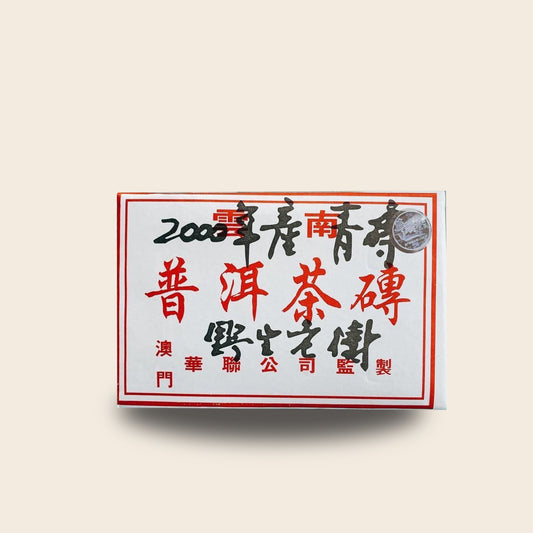 雲南
2000年產青磚
普洱茶磚
野生老樹
澳門華聯公司監製